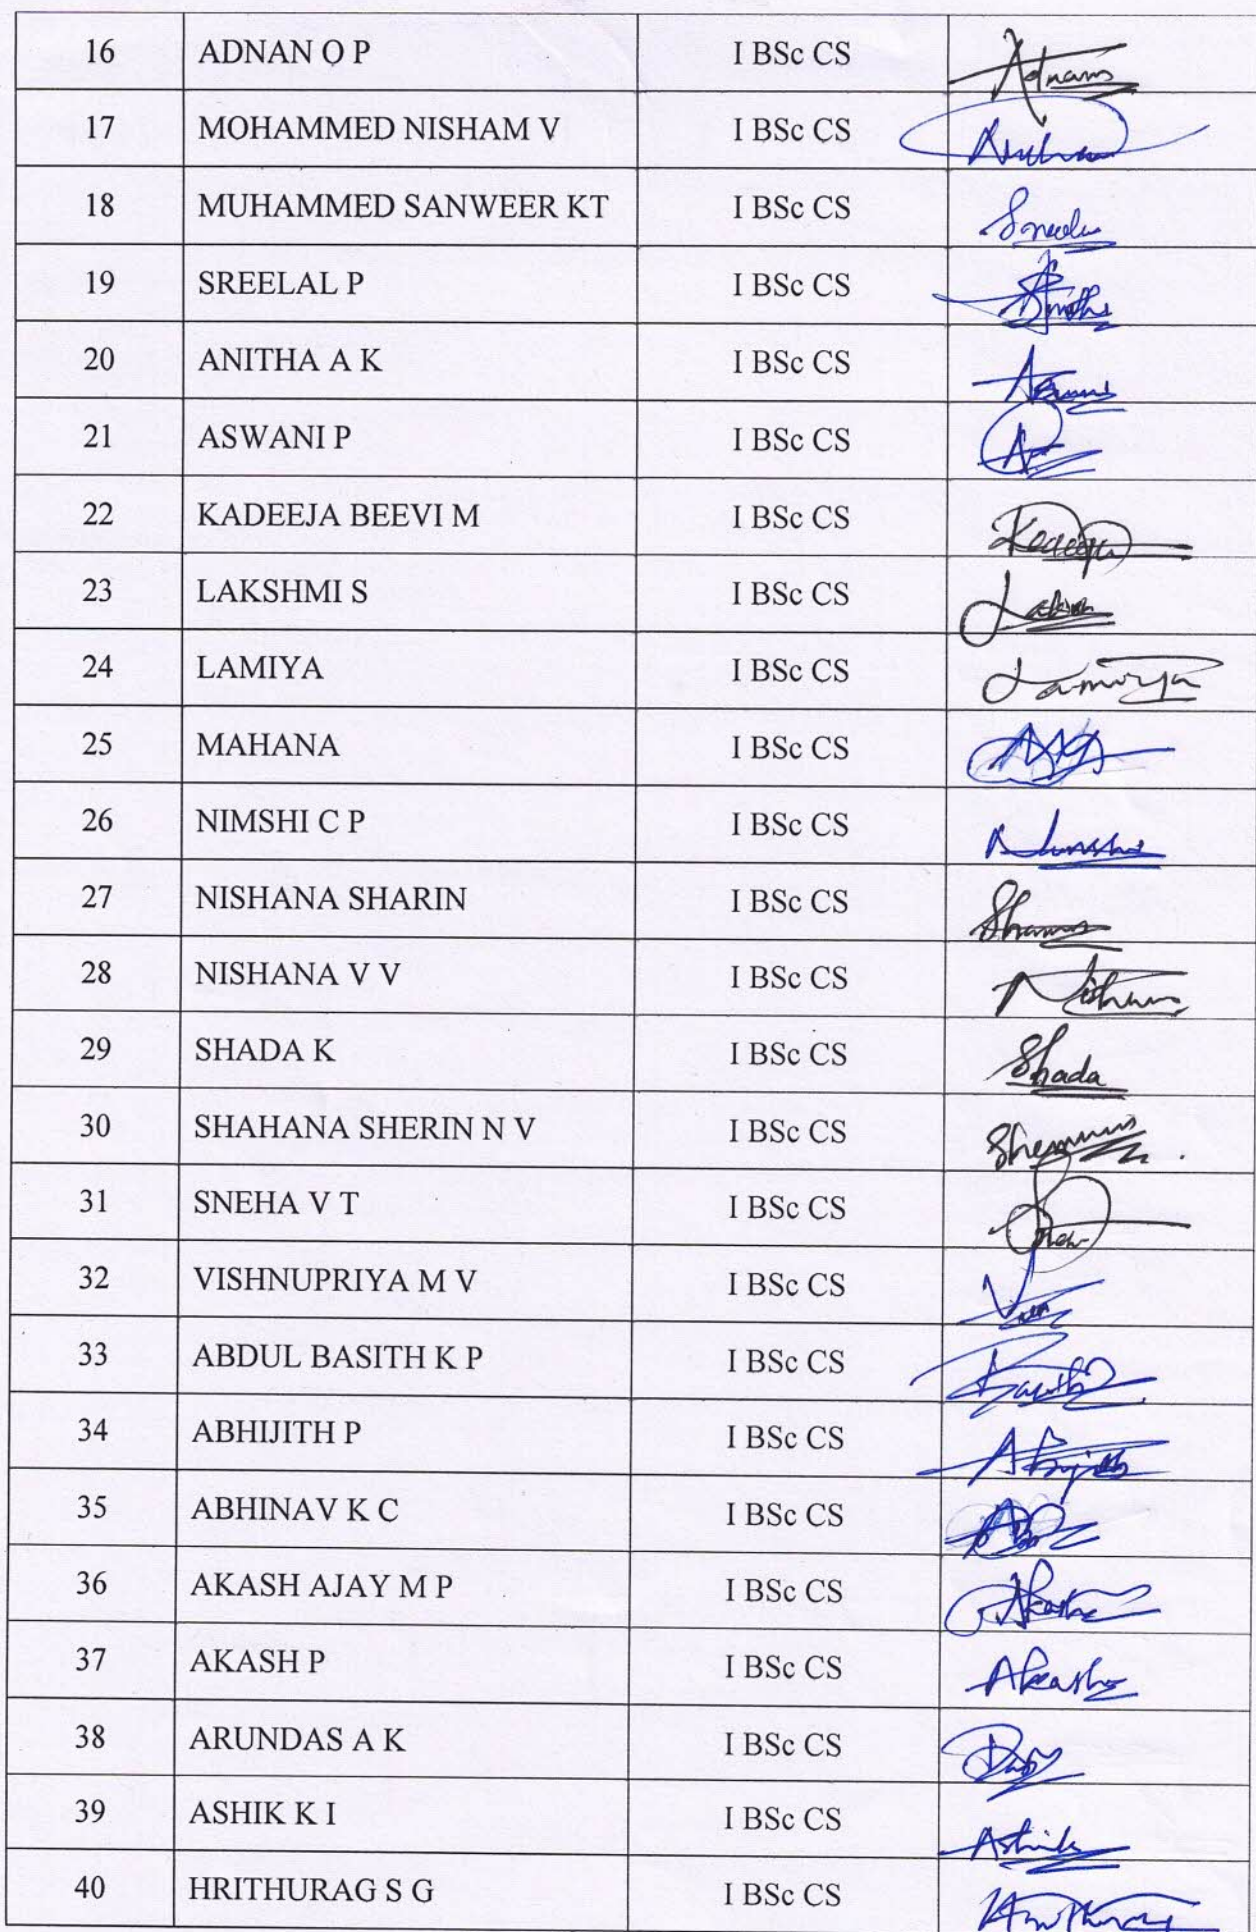 16 ADNAN O P I BSc CS Adnan
17 MOHAMMED NISHAM V I BSc CS
18 MUHAMMED SANWEER KT I BSc CS
19 SREELAL P I BSc CS
20 ANITHA A K I BSc CS
21 ASWANI P I BSc CS
22 KADEEJA BEEVI M I BSc CS Kadeeja
23 LAKSHMI S I BSc CS
24 LAMIYA I BSc CS Lamiya
25 MAHANA I BSc CS
26 NIMSHI C P I BSc CS
27 NISHANA SHARIN I BSc CS
28 NISHANA V V I BSc CS
29 SHADA K I BSc CS Shada
30 SHAHANA SHERIN N V I BSc CS
31 SNEHA V T I BSc CS
32 VISHNUPRIYA M V I BSc CS
33 ABDUL BASITH K P I BSc CS Basith
34 ABHIJITH P I BSc CS
35 ABHINAV K C I BSc CS
36 AKASH AJAY M P I BSc CS Akash
37 AKASH P I BSc CS Akash
38 ARUNDAS A K I BSc CS
39 ASHIK K I I BSc CS Ashik
40 HRITHURAG S G I BSc CS